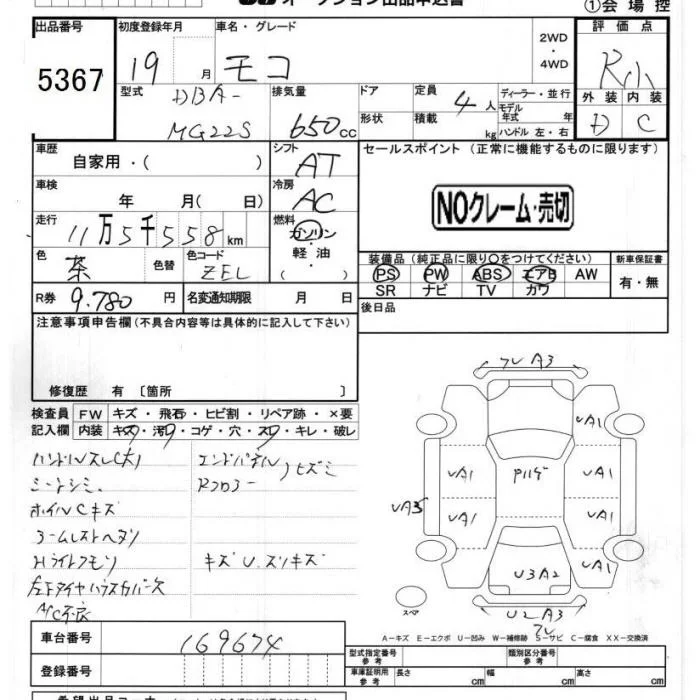 オークション出品申込書
①会場控
出品番号
5367
初度登録年月
19 月
車名・グレード
モコ
2WD
・
4WD
評価点
R小
型式
DBA-
MG22S
排気量
650cc
ドア
形状
定員
4人
積載
kg
ディーラー・並行
モデル年式 年
ハンドル 左・右
外装 内装
D C
車歴
自家用・( )
シフト
AT
セールスポイント (正常に機能するものに限ります)
NOクレーム・売切
車検
年 月( 日)
冷房
AC
走行
11万5千558km
燃料
ガソリン
・
軽油
( )
色
茶
色替
色コード
ZEL
装備品(純正品に限り○をつけてください)
PS PW ABS エアB AW
SR ナビ TV カワ
新車保証書
有・無
R券
9.780円
名変通知期限 月 日
後日品
注意事項申告欄(不具合内容等は具体的に記入して下さい)
修復歴 有 〔箇所 〕
検査員
記入欄
FW キズ・飛石・ヒビ割・リペア跡・×要
内装 キズ・汚・コゲ・穴・スレ・キレ・破レ
ハンドルスレ(大)
シートシミ.
ホイルCキズ
アームレストヘタリ
Hライトクモリ
左Fタイヤハウスカバー欠
A/C不良
エンドパネル
Rフロアー
ヒズミ
キズU.スリキズ
フレA3
UA1
UA1 UA1
UA35
UA1 UA1
UA1
U3A2
U2A3
スペア
A-キズ E-エクボ U-凹み W-補修跡 S-サビ C-腐食 XX-交換済
車台番号
169674
登録番号
型式指定番号
参考
類別区分番号
参考
車庫証明用
参考
長さ cm
幅 cm
高さ cm
希望出品コーナー